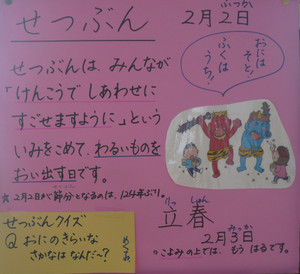 せつぶん
ふつか
2月2日
おには そと!
ふくは うち!
せつぶんは、みんなが
「けんこうで しあわせに
すごせますように」という
いみをこめて、わるいものを
おい出す日です。
☆2月2日が節分となるのは、124年ぶり。
りっ しゅん
立春
みっか
2月3日
こよみの上では、もう はるです。
せつぶんクイズ
Q おにのきらいな
さかなは なんだ〜?